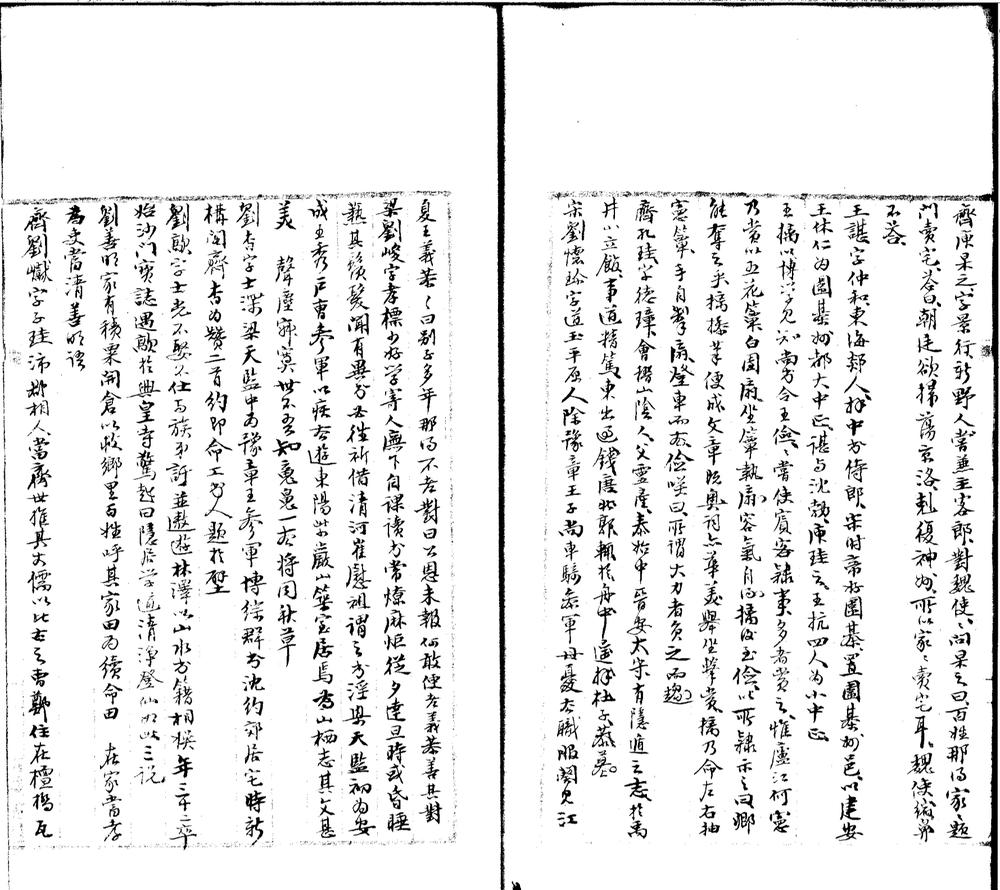 齊庾杲之字景行新野人嘗兼主客郎對魏使、問杲之曰百姓那得家、題
門賣宅答曰朝廷欲掃蕩京洛剋復神州所以家、賣宅耳魏使縮鼻
不荅
王諶字仲和東海郯人拜中書侍郎宋時帝好圍棊置圍棊州邑以建安
王休仁為圍棊州都大中正諶与沈勃庾珪之王抗四人為小中正
王摛以博学見知尚書令王儉、嘗使賓客隸事多者賞之惟廬江何憲
乃賞以五花簟白團扇坐簟執扇容氣自得摛後至儉以所隸示之曰卿
能奪之乎摛操筆便成文章既奧詞亦華美舉坐擊賞摛乃命左右抽
憲簟手自掣扇登車而去儉咲曰所謂大力者負之而趨
齊孔珪字德璋會稽山陰人父靈產泰始中晉安太守有隱遁之志於禹
井山立館事道精篤東出過錢唐北郭輒於舟中遥拜杜子恭墓
宋劉懷珍字道玉平原人除豫章王子尚車騎參軍母憂去職服闋見江
夏王義恭、曰別子多年那得不老對曰公恩未報何敢便老義恭善其對
梁劉峻字孝標少好学寄人廡下自課讀書常燎麻炬從夕達旦時或昏睡
爇其鬚髮聞有異書必往祈借清河崔慰祖謂之書淫與天監初為安
成王秀戶曹參軍以疾去遊東陽紫巖山築室居焉為山栖志其文甚
美　聲塵寂寞世不吾知䰟䰟一去將同秋草
劉杳字士深梁天監中為豫章王參軍博綜群書沈約郊居宅時新
構閣齋杳為贊二首約即命工書人題於壁
劉歊字士光不娶不仕与族弟訏並遨遊林澤以山水書籍相娛年三十二卒
始沙門寶誌遇歊於興皇寺驚起曰隱居学道清淨登仙如此三說
劉善明家有積粟開倉以救鄉里百姓呼其家田為續命田　在家當孝
為吏當清善明語
齊劉瓛字子珪沛郡相人當齊世推其大儒以比古之曹鄭住在檀橋瓦